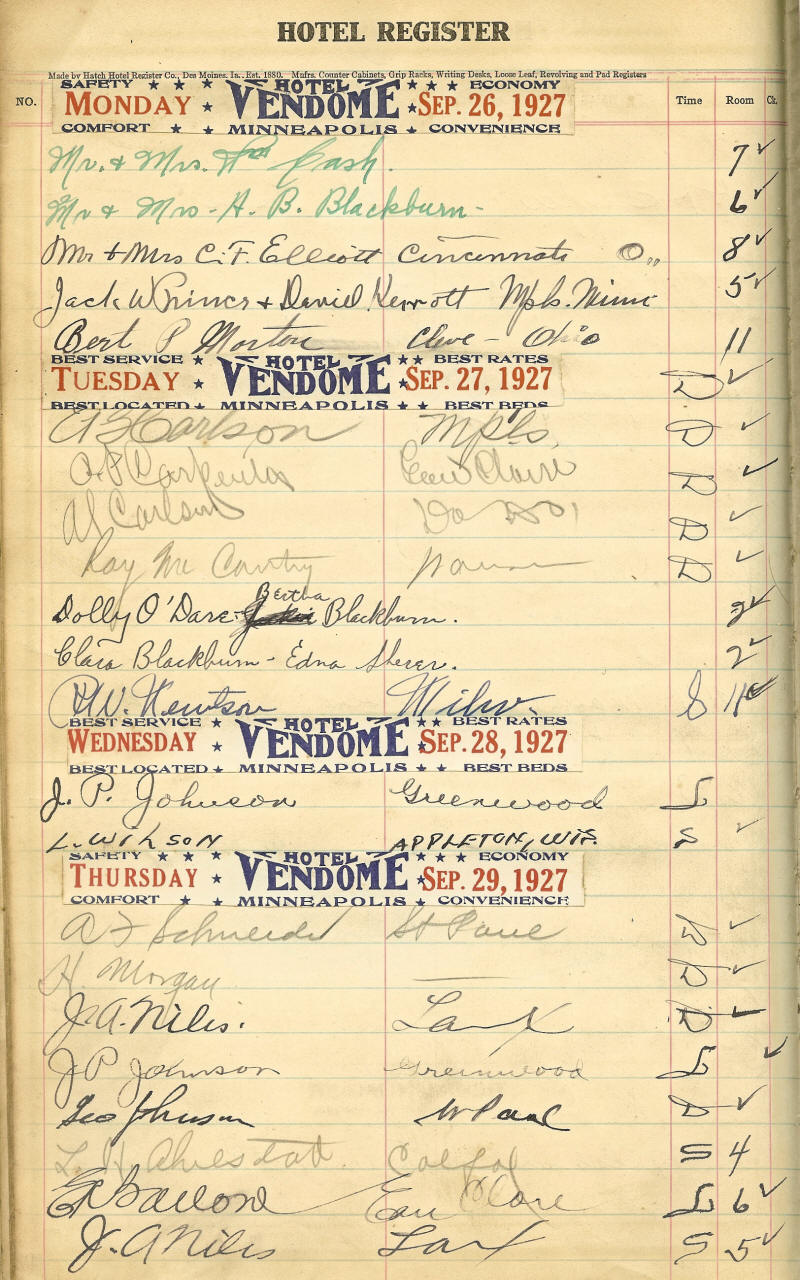 HOTEL REGISTER
Made by Hatch Hotel Register Co., Des Moines, Ia., Est. 1880. Mfrs. Counter Cabinets, Grip Racks, Writing Desks, Loose Leaf, Revolving and Pad Registers
NO. Time Room Ck.
SAFETY HOTEL ECONOMY
MONDAY VENDOME SEP. 26, 1927
COMFORT MINNEAPOLIS CONVENIENCE
Mr. & Mrs. Cash. 7
Mr & Mrs - A. B. Blackburn - 6
Mr & Mrs C. F. Elliott Cincinnati O,, 8
Jack W & David Mpls. Minn 5
Bert P Morton Cleve - Ohio 11
BEST SERVICE HOTEL BEST RATES
TUESDAY VENDOME SEP. 27, 1927 D
BEST LOCATED MINNEAPOLIS BEST BEDS
Carlson Mpls. D
Claire D
Al Carlson Do D
Ray Mc D
Dolly O'Dare - Bertha Blackburn. 2
Clara Blackburn - Edna Sherer. 2
Milw. 11
BEST SERVICE HOTEL BEST RATES
WEDNESDAY VENDOME SEP. 28, 1927
BEST LOCATED MINNEAPOLIS BEST BEDS
J. P. Johnson Greenwood L
L. WILSON APPLETON, WIS. S
SAFETY HOTEL ECONOMY
THURSDAY VENDOME SEP. 29, 1927
COMFORT MINNEAPOLIS CONVENIENCE
A F Schneider St Paul D
H. Morgan — D
J. A. Nilis. D
J P Johnson Greenwood L
Geo Johnson St Paul D
L. H. Colfax S 4
Eau Clare L 6
J. A Nilis S 5